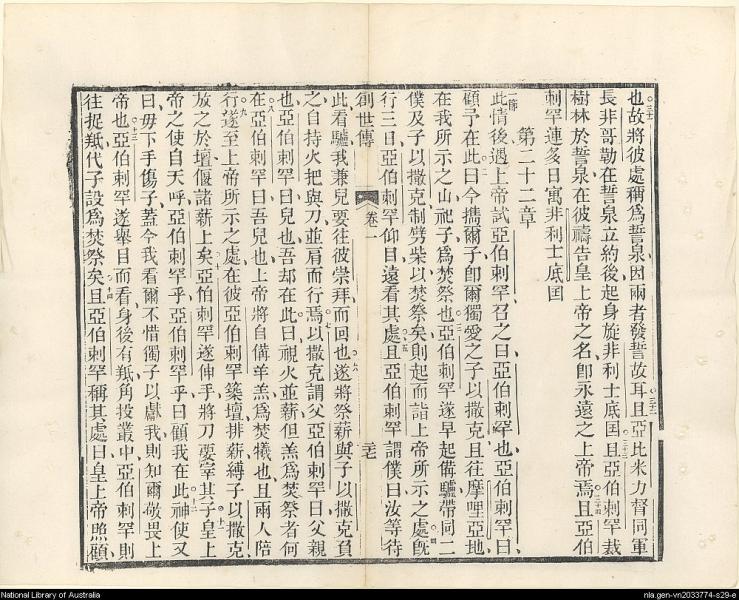 也故將彼處稱爲誓泉因兩者發誓故耳且亞比米力督同軍
長非哥勒在誓泉立約後起身旋非利士底囯且亞伯剌罕裁
樹林於誓泉在彼禱吿皇上帝之名卽永遠之上帝焉且亞伯
剌罕連多日寓非利士底囯
第二十二章
一節
此情後遇上帝試亞伯剌罕召之曰亞伯剌罕也亞伯剌罕曰
顧予在此曰今攜爾子卽爾獨愛之子以撒克且往摩哩亞地
在我所示之山祀子爲焚祭也亞伯剌罕遂早起備驢帶同二
僕及子以撒克制劈柴以焚祭矣則起而詣上帝所示之處旣
行三日亞伯剌罕仰目遠看其處且亞伯剌罕謂僕曰汝等待
創世傳
卷一
此看驢我兼兒要往彼崇拜而回也遂將祭薪與子以撒克負
之自持火把與刀並肩而行焉以撒克謂父亞伯剌罕曰父親
也亞伯剌罕曰兒也吾却在此曰視火並薪但羔爲焚祭者何
在亞伯剌罕曰吾兒也上帝將自備羊羔爲焚犧也且兩人陪
行遂至上帝所示之處在彼亞伯剌罕築壇排薪縛子以撒克
放之於壇偃諸薪上矣亞伯剌罕遂伸手將刀要宰其子皇上
帝之使自天呼亞伯剌罕乎亞伯剌罕乎曰顧我在此神使又
曰毋下手傷子蓋今我看爾不惜獨子以獻我則知爾敬畏上
帝也亞伯剌罕遂舉目而看身後有羝角投叢中亞伯剌罕則
往捉羝代子設爲焚祭矣且亞伯剌罕稱其處曰皇上帝照顧
National Library of Australia
nla.gen-vn2033774-s29-e